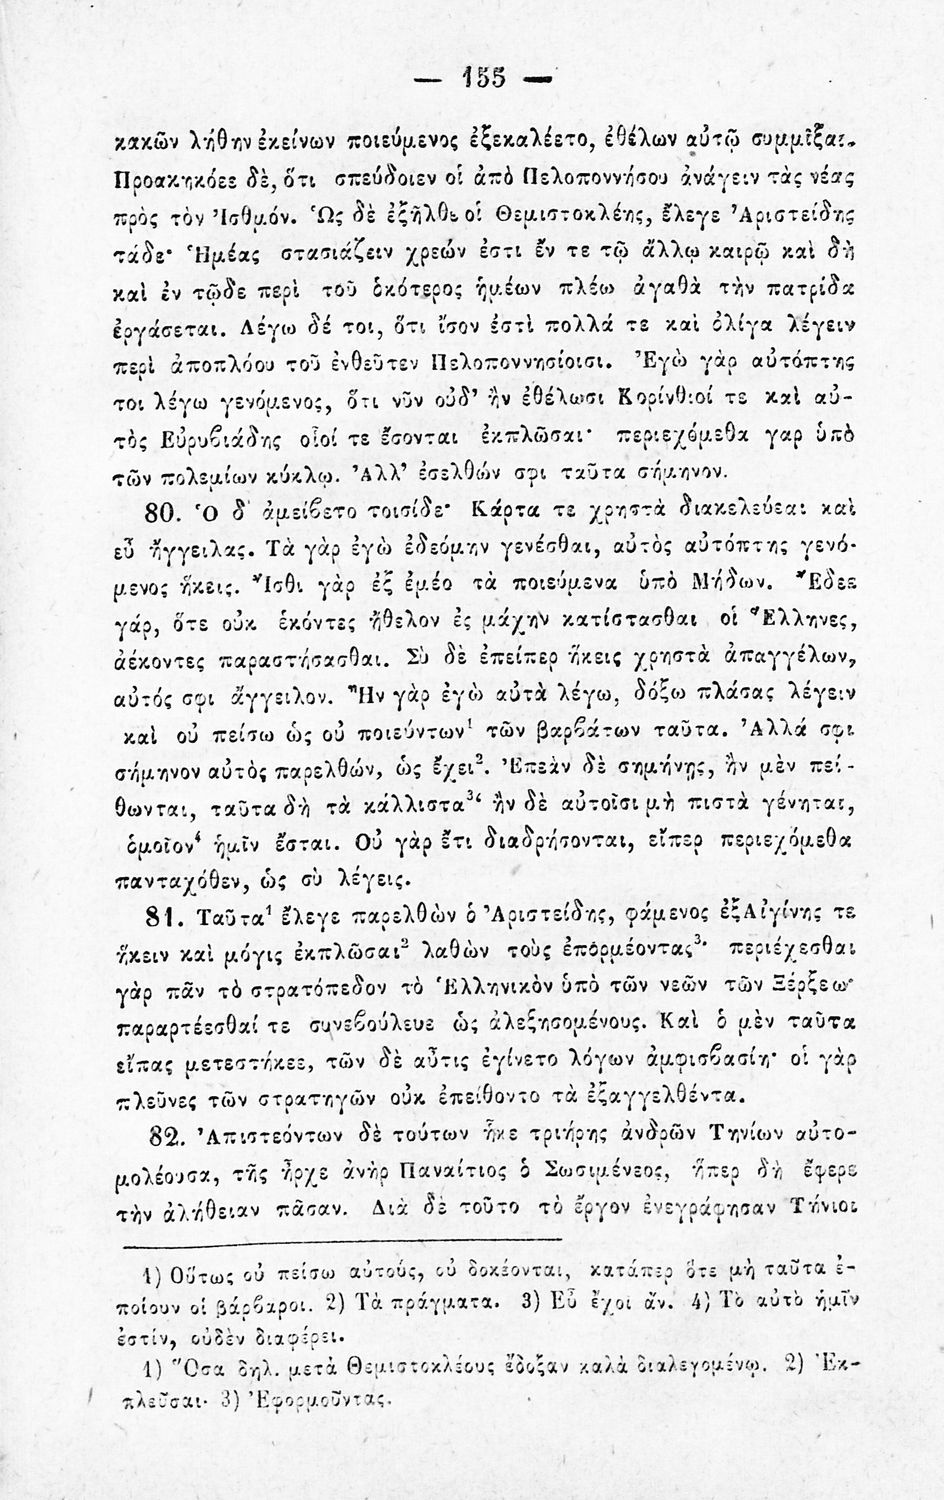 — 155 —
κακῶν λήθην ἐκείνων ποιεύμενος ἐξεκαλέετο, ἐθέλων αὐτῷ συμμῖξαι.
Προακηκόεε δὲ, ὅτι σπεύδοιεν οἱ ἀπὸ Πελοποννήσου ἀνάγειν τὰς νέας
πρὸς τὸν Ἰσθμόν. Ὡς δὲ ἐξῆλθε οἱ Θεμιστοκλέης, ἔλεγε Ἀριστείδης
τάδε· Ἡμέας στασιάζειν χρεών ἐστι ἔν τε τῷ ἄλλῳ καιρῷ καὶ δὴ
καὶ ἐν τῷδε περὶ τοῦ ὁκότερος ἡμέων πλέω ἀγαθὰ τὴν πατρίδα
ἐργάσεται. Λέγω δέ τοι, ὅτι ἴσον ἐστὶ πολλά τε καὶ ὀλίγα λέγειν
περὶ ἀποπλόου τοῦ ἐνθεῦτεν Πελοποννησίοισι. Ἐγὼ γὰρ αὐτόπτης
τοι λέγω γενόμενος, ὅτι νῦν οὐδ' ἢν ἐθέλωσι Κορίνθιοί τε καὶ αὐ-
τὸς Εὐρυβιάδης οἷοί τε ἔσονται ἐκπλῶσαι· περιεχόμεθα γαρ ὑπὸ
τῶν πολεμίων κύκλῳ. Ἀλλ' ἐσελθών σφι ταῦτα σήμηνον.
80. Ὁ δ' ἀμείβετο τοισίδε· Κάρτα τε χρηστὰ διακελεύεαι καὶ
εὖ ἤγγειλας. Τὰ γὰρ ἐγὼ ἐδεόμην γενέσθαι, αὐτὸς αὐτόπτης γενό-
μενος ἥκεις. Ἴσθι γὰρ ἐξ ἐμέο τὰ ποιεύμενα ὑπὸ Μήδων. Ἔδεε
γάρ, ὅτε οὐκ ἑκόντες ἤθελον ἐς μάχην κατίστασθαι οἱ Ἕλληνες,
ἀέκοντες παραστήσασθαι. Σὺ δὲ ἐπείπερ ἥκεις χρηστὰ ἀπαγγέλων,
αὐτός σφι ἄγγειλον. Ἢν γὰρ ἐγὼ αὐτὰ λέγω, δόξω πλάσας λέγειν
καὶ οὐ πείσω ὡς οὐ ποιεύντων¹ τῶν βαρβάτων ταῦτα. Ἀλλά σφι
σήμηνον αὐτὸς παρελθών, ὡς ἔχει². Ἐπεὰν δὲ σημήνῃς, ἢν μὲν πεί-
θωνται, ταῦτα δὴ τὰ κάλλιστα³· ἢν δὲ αὐτοῖσι μὴ πιστὰ γένηται,
ὁμοῖον⁴ ἡμῖν ἔσται. Οὐ γὰρ ἔτι διαδρήσονται, εἴπερ περιεχόμεθα
πανταχόθεν, ὡς σὺ λέγεις.
81. Ταῦτα¹ ἔλεγε παρελθὼν ὁ Ἀριστείδης, φάμενος ἐξ Αἰγίνης τε
ἥκειν καὶ μόγις ἐκπλῶσαι² λαθὼν τοὺς ἐπορμέοντας³· περιέχεσθαι
γὰρ πᾶν τὸ στρατόπεδον τὸ Ἑλληνικὸν ὑπὸ τῶν νεῶν τῶν Ξέρξεω·
παραρτέεσθαί τε συνεβούλευε ὡς ἀλεξησομένους. Καὶ ὁ μὲν ταῦτα
εἴπας μετεστήκεε, τῶν δὲ αὖτις ἐγίνετο λόγων ἀμφισβασίη· οἱ γὰρ
πλεῦνες τῶν στρατηγῶν οὐκ ἐπείθοντο τὰ ἐξαγγελθέντα.
82. Ἀπιστεόντων δὲ τούτων ἧκε τριήρης ἀνδρῶν Τηνίων αὐτο-
μολέουσα, τῆς ἦρχε ἀνὴρ Παναίτιος ὁ Σωσιμένεος, ἥπερ δὴ ἔφερε
τὴν ἀλήθειαν πᾶσαν. Διὰ δὲ τοῦτο τὸ ἔργον ἐνεγράφησαν Τήνιοι
1) Οὕτως οὐ πείσω αὐτούς, οὐ δοκέονται, κατάπερ ὅτε μὴ ταῦτα ἐ-
ποίουν οἱ βάρβαροι. 2) Τὰ πράγματα. 3) Εὖ ἔχοι ἄν. 4) Τὸ αὐτὸ ἡμῖν
ἐστίν, οὐδὲν διαφέρει.
1) Ὅσα δηλ. μετὰ Θεμιστοκλέους ἔδοξαν καλὰ διαλεγομένῳ. 2) Ἐκ-
πλεῦσαι· 3) Ἐφορμοῦντας.